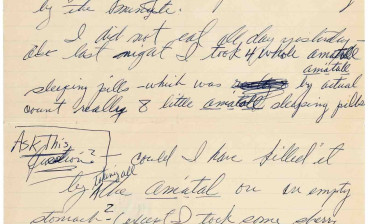 by the
I did not eat all day yesterday
also last night I took 4 whole amatall
amatall
sleeping pills - which was by actual
count really 8 little amatall sleeping pills
Ask This
Question ? - could I have killed it
by taking all the amatal on an empty
stomach? (except I took some sherry